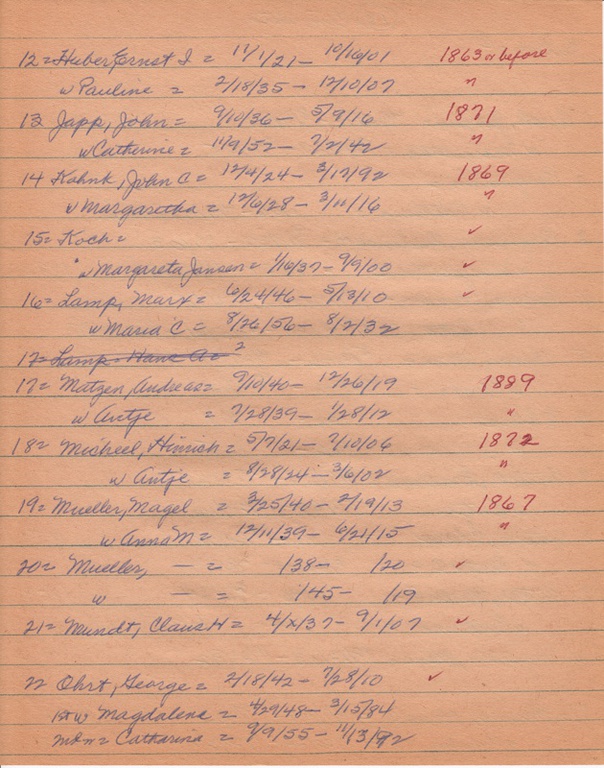 12 = Huber, Ernst I = 11/1/21 - 10/16/01 1863 or before
w Pauline = 2/18/35 - 12/10/07 "
13 Japp, John = 9/10/36 - 5/9/16 1871
w Catherine = 11/9/52 - 7/2/42 "
14 Kohnk, John C = 12/4/24 - 3/17/92 1869
w Margaretha = 12/6/28 - 3/11/16 "
15 = Koch = ✓
w Margareta Jansen = 1/16/37 - 9/9/00 ✓
16 = Lamp, Marx = 6/24/46 - 5/13/10 ✓
w Maria C = 8/26/56 - 8/2/32
17 = Lamp Hans A = 2
17 = Matzen, Andreas = 9/10/40 - 12/26/19 1889
w Antje = 7/28/39 - 1/28/12 "
18 = Micheel, Hinrich = 5/7/21 - 7/10/06 1872
w Antje = 8/28/24 - 3/6/02 "
19 = Mueller, Magel = 3/25/40 - 2/19/13 1867
w Anna M = 12/11/39 - 6/21/15 "
20 = Mueller, — = /38 - /20 ✓
w — = /45 - /19
21 = Mundt, Claus H = 4/x/37 - 9/1/07 ✓
22 Ohrt, George = 2/18/42 - 7/28/10 ✓
1st w Magdalene = 4/29/48 - 3/15/84
= Catharina = 9/9/55 - 11/13/92